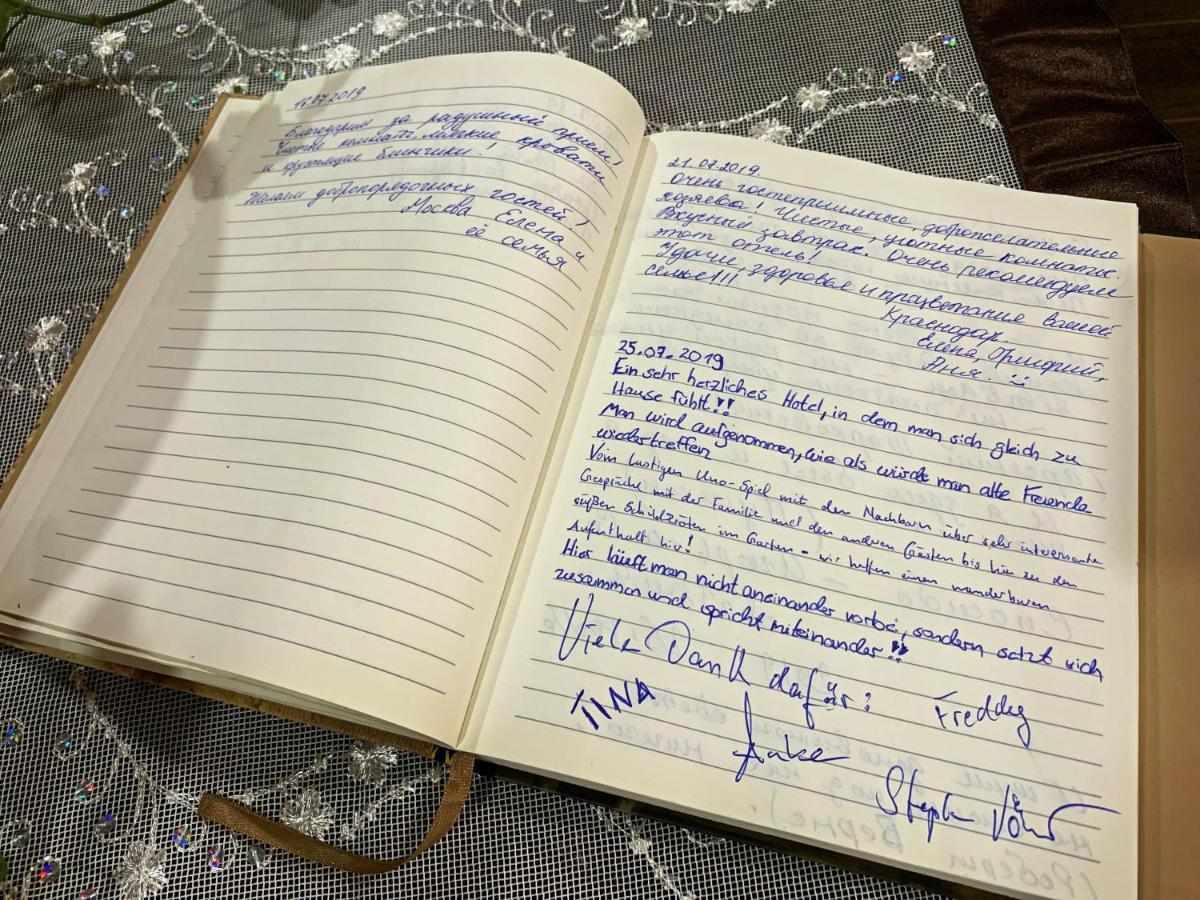 16.07.2019
Благодарим за радушный приём,
чистые комнаты, мягкие кровати
и хрустящие блинчики!
Желаем добропорядочных гостей!
Москва Елена и
её семья
21.07.2019
Очень гостеприимные, доброжелательные
хозяева! Чистые, уютные комнаты.
Вкусный завтрак. Очень рекомендуем
этот отель!
Удачи, здоровья и процветания вашей
семье!!!
Краснодар.
Елена,
Аня.
25.07.2019
Ein sehr herzliches Hotel, in dem man sich gleich zu
Hause fühlt!!
Man wird aufgenommen, wie als würde man alte Freunde
wiedertreffen
Vom lustigen Uno-Spiel mit den Nachbarn über sehr interessante
Gespräche mit der Familie und den anderen Gästen bis hin zu den
süßen Schildkröten im Garten - wir hatten einen wunderbaren
Aufenthalt hier!
Hier läuft man nicht aneinander vorbei, sondern setzt sich
zusammen und spricht miteinander!!
Viele Dank dafür!
Freddy
TINA
Anke